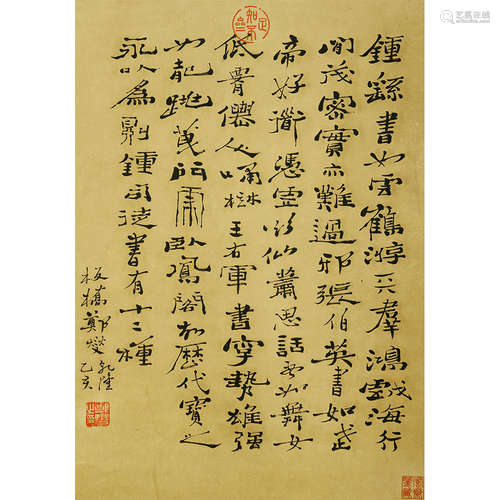 鍾繇書如雲鶴游天羣鴻戲海行
間茂密實亦難過邪張伯英書如武
帝好道憑虛欲仙蕭思話書如舞女
低腰僊人嘯樹王右軍書字勢雄强
如龍跳天門虎臥鳳閣故歷代寶之
永以為訓鍾司徒書有十二種
乾隆乙亥
板橋鄭燮